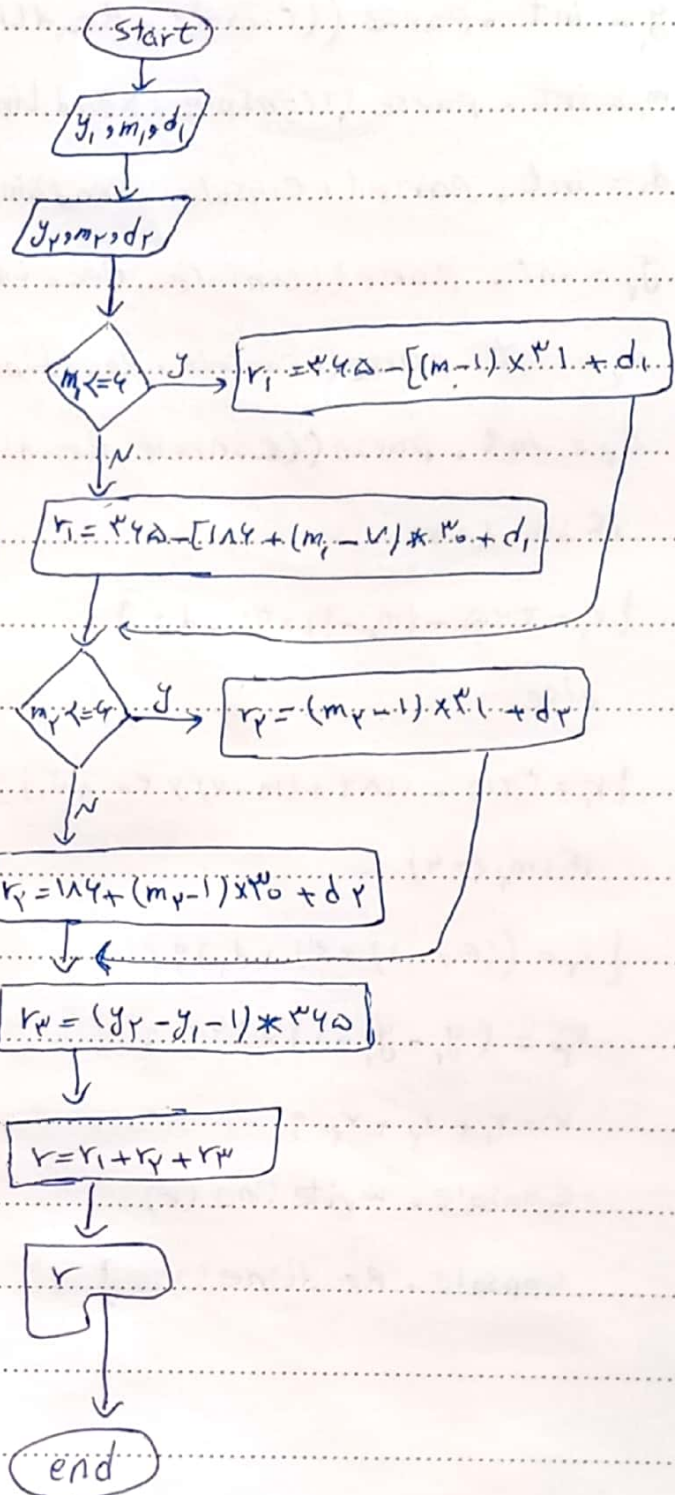 start
y₁,m₁,d₁
y۲,m۲,d۲
m₁<=۶ y
r₁ =۳۶۵-[(m-۱)×۳۱+d₁
N
r₁=۳۶۵-[۱۸۶+(m₁-۷)*۳۰+d₁
m۲<=۶ y
r۲=(m۲-۱)×۳۱+d۲
N
r۲=۱۸۶+(m۲-۱)×۳۰+d۲
r۳=(y۲-y₁-۱)*۳۶۵
r=r₁+r۲+r۳
r
end